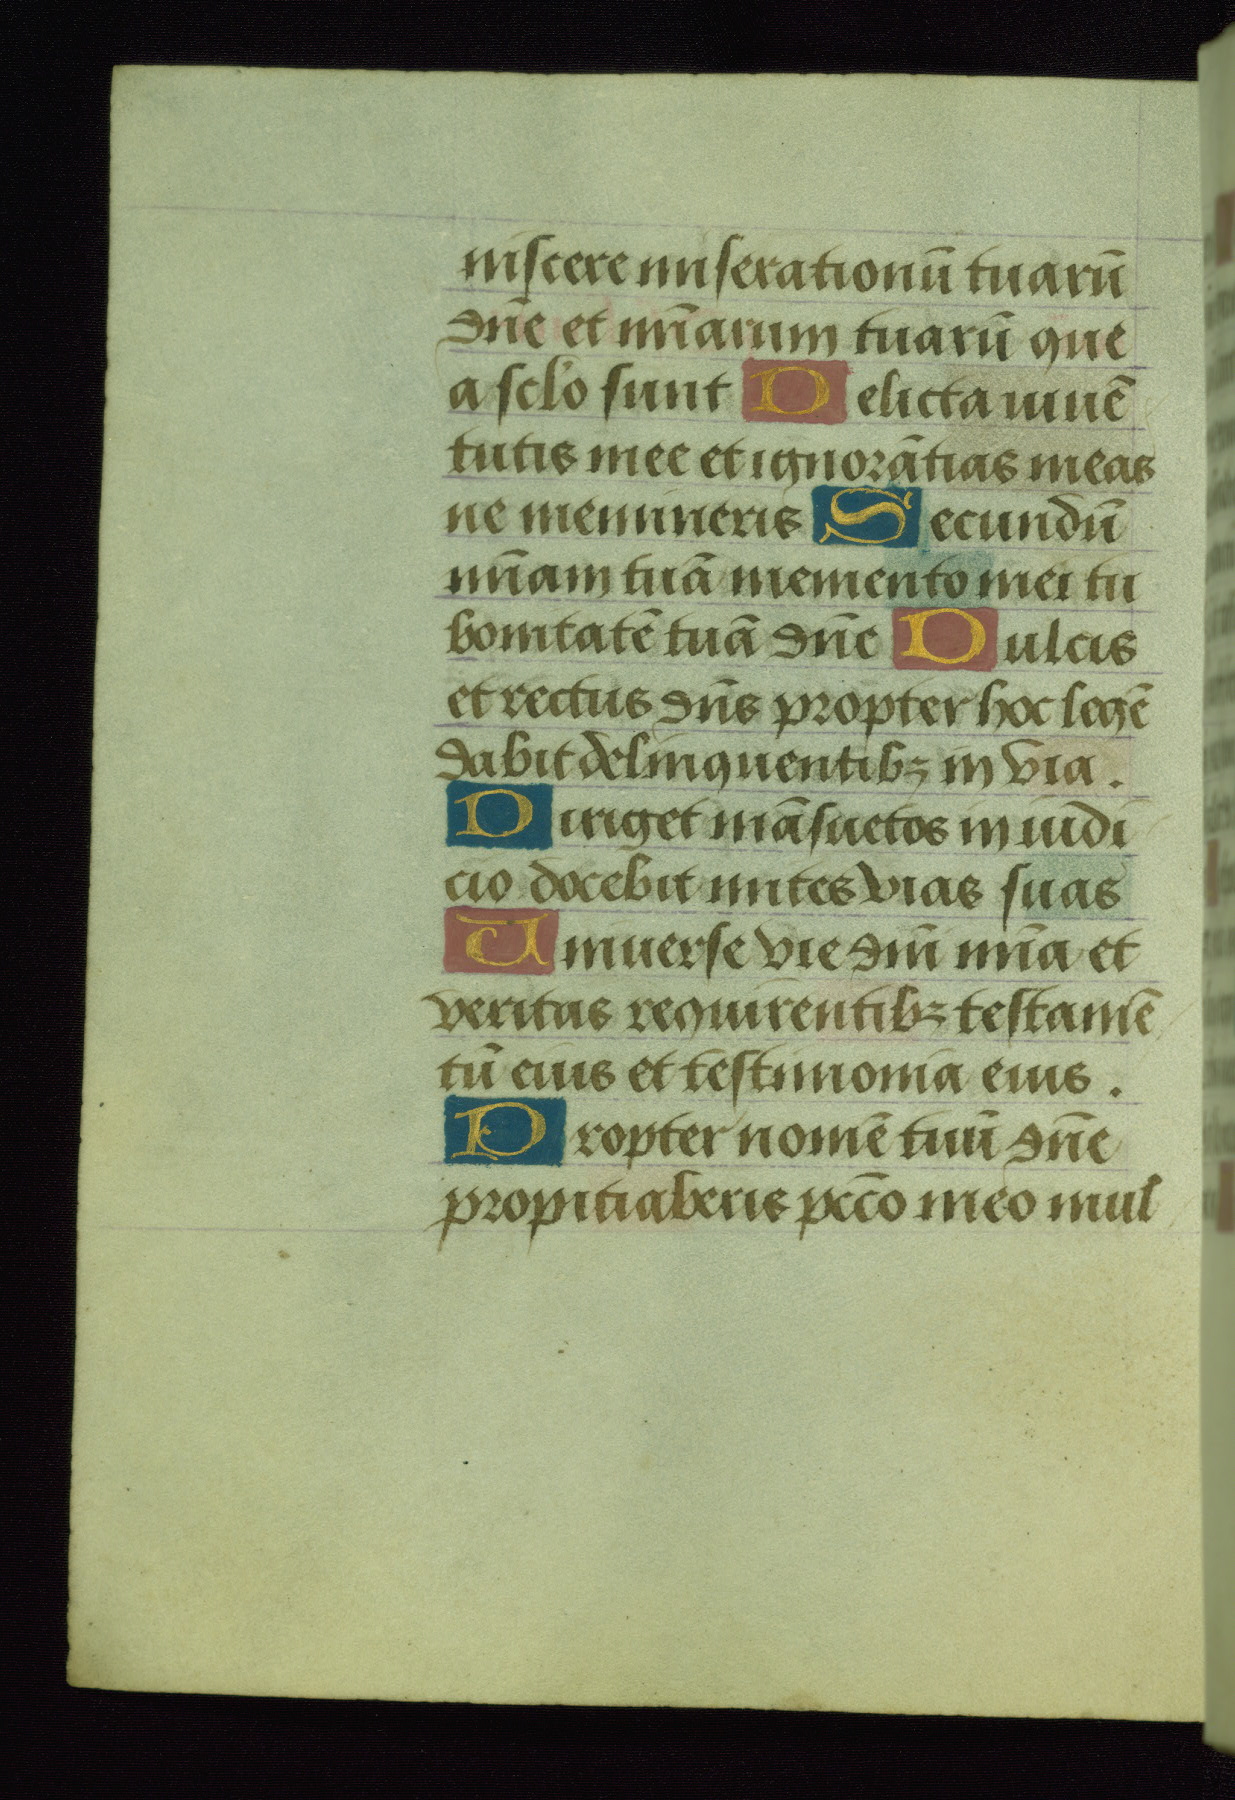 niscere miserationū tuarū
dn̄e et mīarum tuarū que
a sclo sunt Delicta iuuē
tutis mee et ignorātias meas
ne memineris Secundū
mīam tuā memento mei tu
bonitatē tuā dn̄e Dulcis
et rectus dn̄s propter hoc legē
dabit delinquentibꝫ in via .
Diriget māsuetos in iudi
cio docebit mites vias suas
Vniuerse vie dn̄i mīa et
veritas requirentibꝫ testamē
tū eius et testimonia eius .
Propter nomē tuū dn̄e
propitiaberis pctō meo mul